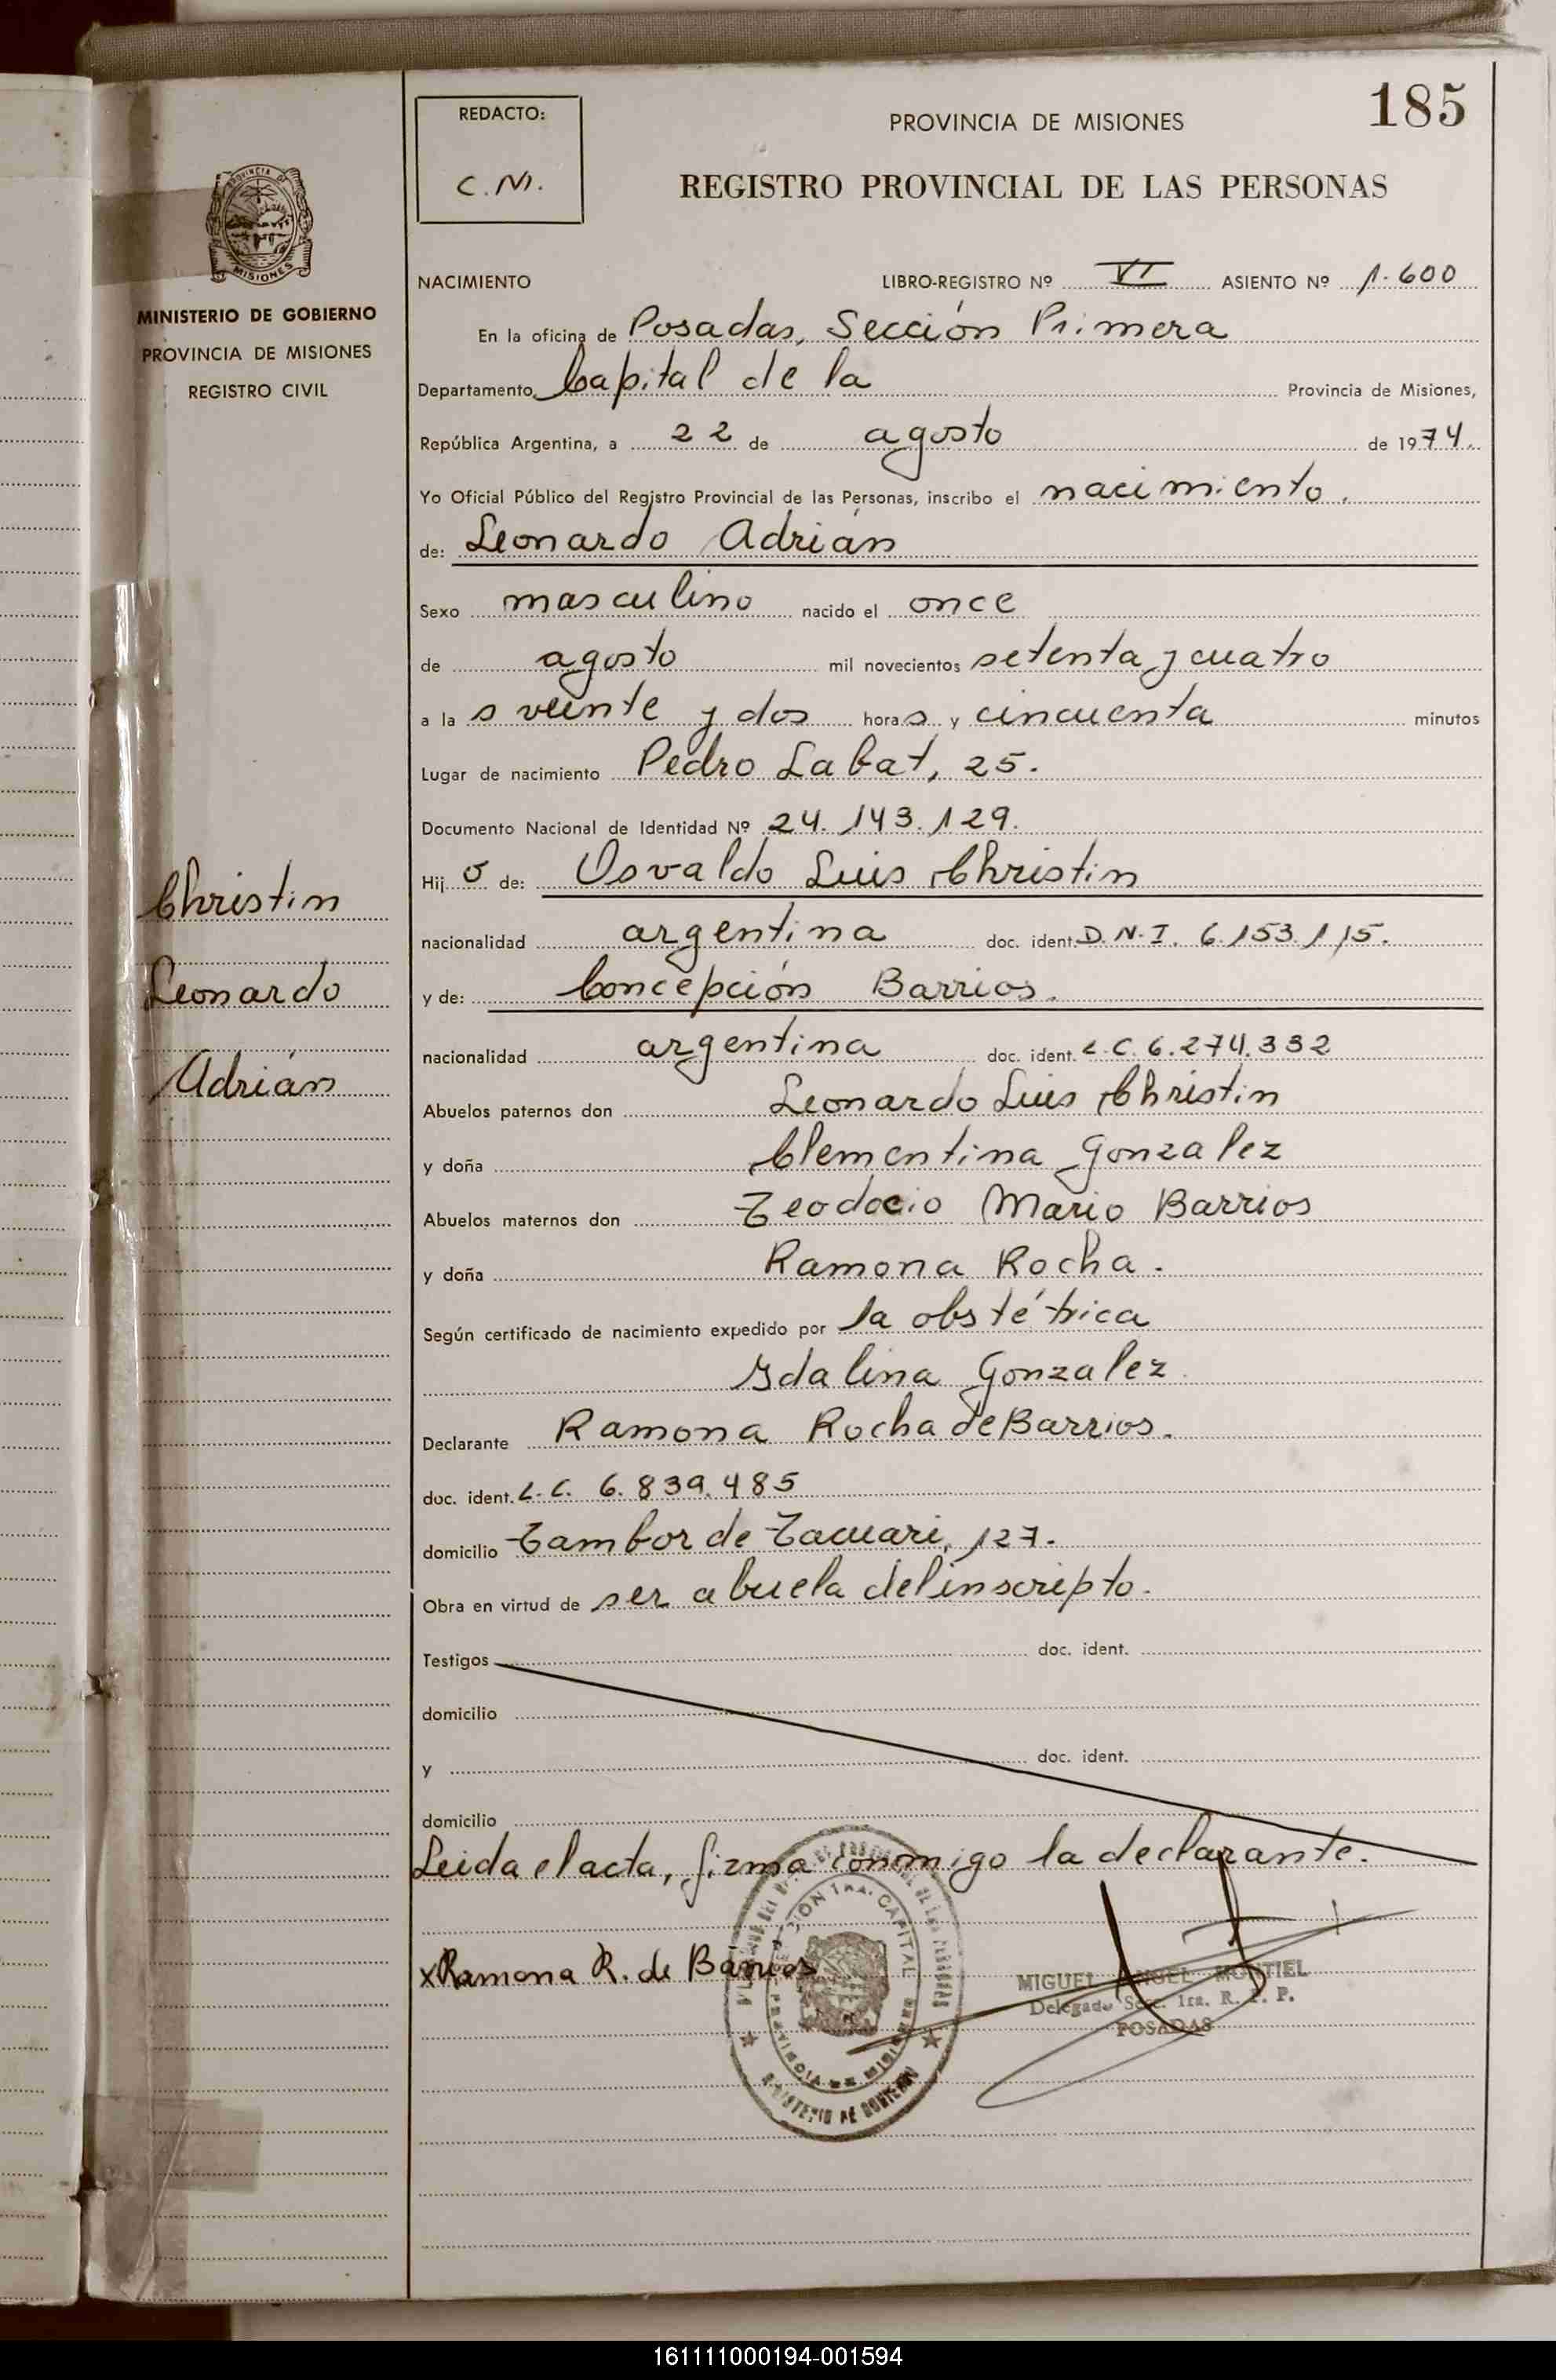 185
REDACTO:
C.M.
PROVINCIA DE MISIONES
REGISTRO PROVINCIAL DE LAS PERSONAS
PROVINCIA DE
MISIONES
MINISTERIO DE GOBIERNO
PROVINCIA DE MISIONES
REGISTRO CIVIL
NACIMIENTO LIBRO-REGISTRO Nº VI ASIENTO Nº 1.600
En la oficina de Posadas, Sección Primera
Departamento Capital de la Provincia de Misiones,
República Argentina, a 22 de agosto de 1974.
Yo Oficial Público del Registro Provincial de las Personas, inscribo el nacimiento,
de: Leonardo Adrián
Sexo masculino nacido el once
de agosto mil novecientos setenta y cuatro
a la s veinte y dos hora s y cincuenta minutos
Lugar de nacimiento Pedro Labat, 25.
Documento Nacional de Identidad Nº 24.143.129.
Hij o de: Osvaldo Luis Christin
nacionalidad argentina doc. ident. D.N.I. 6.153.115.
y de: Concepción Barrios.
nacionalidad argentina doc. ident. L.C. 6.274.332
Abuelos paternos don Leonardo Luis Christin
y doña Clementina Gonzalez
Abuelos maternos don Teodocio Mario Barrios
y doña Ramona Rocha.
Según certificado de nacimiento expedido por la obstétrica
Idalina Gonzalez
Declarante Ramona Rocha de Barrios.
doc. ident. L.C. 6.839.485
domicilio Tambor de Tacuari, 127.
Obra en virtud de ser abuela del inscripto.
Testigos doc. ident.
domicilio
y doc. ident.
domicilio
Leida el acta, firma conmigo la declarante.
Christin
Leonardo
Adrián
x Ramona R. de Barrios
CAPITAL
PROVINCIA DE MISIONES
MINISTERIO DE GOBIERNO
MIGUEL ANGEL MONTIEL
Delegado Secc. 1ra. R. P. P.
POSADAS
161111000194-001594